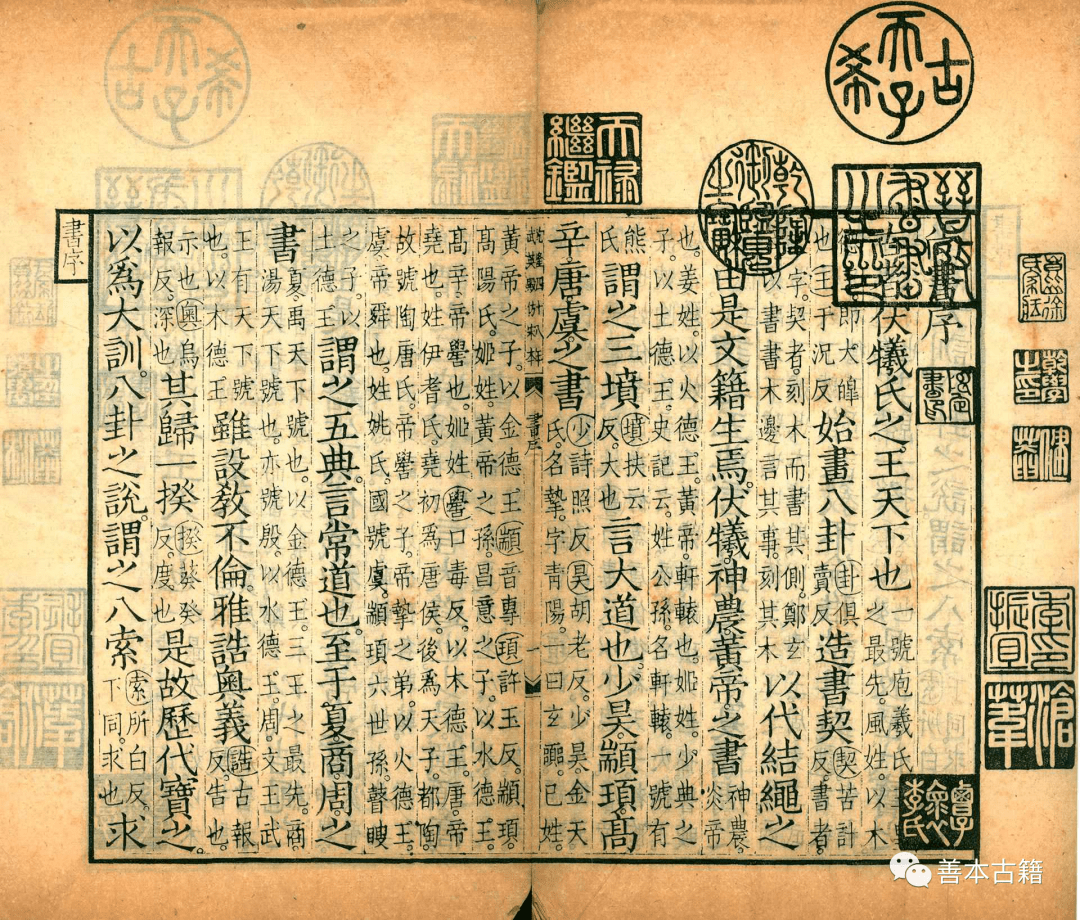 古希天子
天祿繼鑑
乾隆御覽之寶
書序
伏犧氏之王天下也
一號庖羲氏
之最先。風姓。以木
即大皥
也王于況反
始畫八卦
卦俱
賣反
造書契
契苦計
反。書者
字。契者。刻木而書其側。鄭玄
以書書木邊言其事。刻其木
以代結繩之
由是文籍生焉。伏犧。神農黃帝之書
神農。
炎帝
也。姜姓。以火德王。黃帝軒轅也。姬姓。少典之
子。以土德王。史記云。姓公孫。名軒轅。一號有
熊
氏
謂之三墳
墳扶云
反。大也
言大道也。少昊。顓頊。高
辛。唐虞。之書
少詩照反。昊胡老反。少昊。金天
氏。名摯。字青陽。一曰玄囂。已姓。
黃帝之子。以金德王。顓音專。頊許玉反。顓頊。
高陽氏。姬姓。黃帝之孫。昌意之子。以水德王。
高辛。帝嚳也。姬姓。嚳口毒反。以木德王。唐。帝
堯也。姓伊耆氏。堯初爲唐侯。後爲天子。都陶。
故號陶唐氏。帝嚳之子。帝摯之弟。以火德王。
虞。帝舜也。姓姚氏。國號虞。顓頊六世孫。瞽瞍
之子。以
土德王
謂之五典。言常道也。至于夏商。周。之
書
夏。禹天下號也。以金德王。三王之最先。商。
湯天下號也。亦號殷。以水德王。周。文王武
王有天下號
也。以木德王
雖設教不倫。雅誥奧義
誥古報
反。告也。
示也。奧烏
報反。深也。
其歸一揆
揆葵癸
反。度也
是故歷代寶之
以爲大訓。八卦之說。謂之八索
索所白反。
下同。求也
求
書序
善本古籍